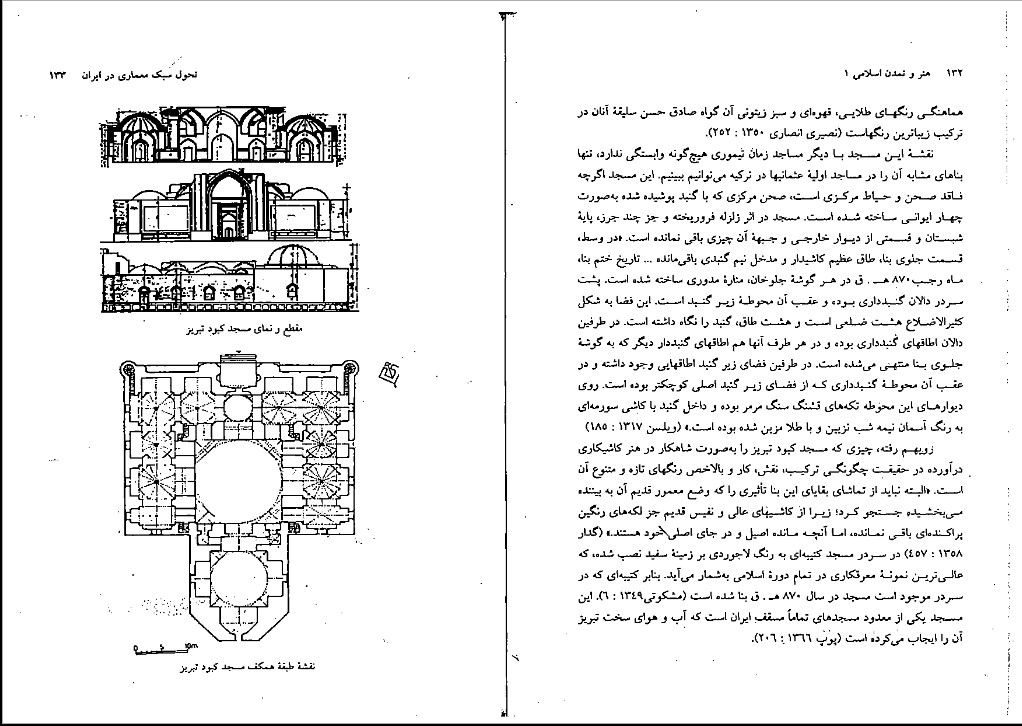 ۱۳۲ هنر و تمدن اسلامی ۱
هماهنگی رنگهای طلایی، قهوه‌ای و سبز زیتونی آن گواه صادق حسن سلیقهٔ آنان در
ترکیب زیباترین رنگهاست (نصیری انصاری ۱۳۵۰ : ۲۵۲).
نقشهٔ این مسجد با دیگر مساجد زمان تیموری هیچ‌گونه وابستگی ندارد، تنها
بناهای مشابه آن را در مساجد اولیهٔ عثمانیها در ترکیه می‌توانیم ببینیم. این مسجد اگرچه
فاقد صحن و حیاط مرکزی است، صحن مرکزی که با گنبد پوشیده شده به‌صورت
چهار ایوانی ساخته شده است. مسجد در اثر زلزله فروریخته و جز چند جرز، پایهٔ
شبستان و قسمتی از دیوار خارجی و جبههٔ آن چیزی باقی نمانده است. «در وسط،
قسمت جلوی بنا، طاق عظیم کاشیدار و مدخل نیم گنبدی باقی‌مانده ... تاریخ ختم بنا،
ماه رجب ۸۷۰ هـ . ق در هر گوشهٔ جلوخان، منارهٔ مدوری ساخته شده است. پشت
سردر دالان گنبدداری بوده و عقب آن محوطهٔ زیر گنبد است. این فضا به شکل
کثیرالاضلاع هشت ضلعی است و هشت طاق، گنبد را نگاه داشته است. در طرفین
دالان اطاقهای گنبدداری بوده و در هر طرف آنها هم اطاقهای گنبددار دیگر که به گوشهٔ
جلوی بنا منتهی می‌شده است. در طرفین فضای زیر گنبد اطاقهایی وجود داشته و در
عقب آن محوطهٔ گنبدداری که از فضای زیر گنبد اصلی کوچکتر بوده است. روی
دیوارهای این محوطه تکه‌های قشنگ سنگ مرمر بوده و داخل گنبد با کاشی سورمه‌ای
به رنگ آسمان نیمه شب تزیین و با طلا مزین شده بوده است.» (ویلسن ۱۳۱۷ : ۱۸۵)
رویهم رفته، چیزی که مسجد کبود تبریز را به‌صورت شاهکار در هنر کاشیکاری
درآورده در حقیقت چگونگی ترکیب، نقش، کار و بالاخص رنگهای تازه و متنوع آن
است. «البته نباید از تماشای بقایای این بنا تأثیری را که وضع معمور قدیم آن به بیننده
می‌بخشیده جستجو کرد؛ زیرا از کاشیهای عالی و نفیس قدیم جز لکه‌های رنگین
پراکنده‌ای باقی نمانده، اما آنچه مانده اصیل و در جای اصلی خود هستند.» (گدار
۱۳۵۸ : ۴۵۷) در سردر مسجد کتیبه‌ای به رنگ لاجوردی بر زمینهٔ سفید نصب شده، که
عالی‌ترین نمونهٔ معرقکاری در تمام دورهٔ اسلامی به‌شمار می‌آید. بنابر کتیبه‌ای که در
سردر موجود است مسجد در سال ۸۷۰ هـ . ق بنا شده است (مشکوتی ۱۳۴۹ : ۶). این
مسجد یکی از معدود مسجدهای تماماً مسقف ایران است که آب و هوای سخت تبریز
آن را ایجاب می‌کرده است (پوپ ۱۳۶۶ : ۲۰۶).
تحول سبک معماری در ایران ۱۳۳
مقطع و نمای مسجد کبود تبریز
0 5 10m
نقشهٔ طبقهٔ همکف مسجد کبود تبریز